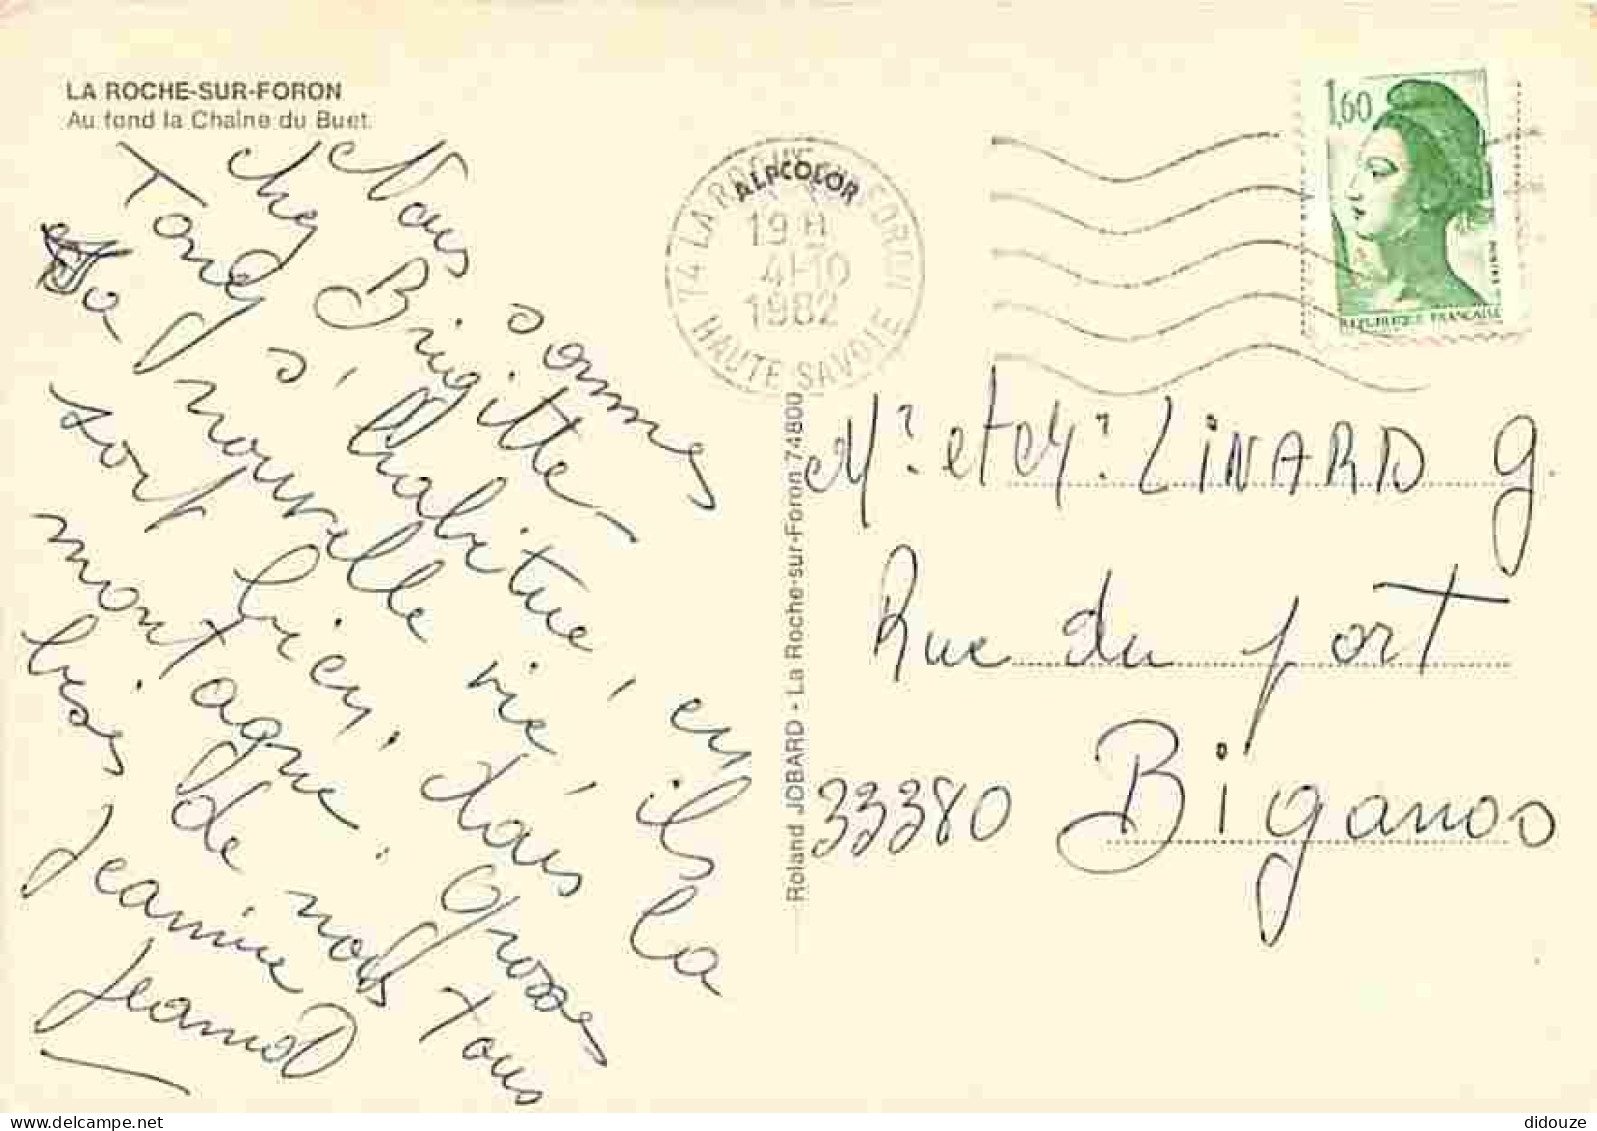 LA ROCHE-SUR-FORON
Au fond la Chaîne du Buet.
Nous sommes
chez Brigitte
Tony s'habitue, en
sa nouvelle vie, ils la
sort bien, dans la
montagne. Grosses
bises de nous tous
Jeanine
Jeannot
ALPCOLOR
74 LA ROCHE SUR FORON
19 H
4-10
1982
HAUTE-SAVOIE
1,60
REPUBLIQUE FRANCAISE
Roland JOBARD - La Roche-sur-Foron 74800
Mr et Mr LINARD g.
Rue du port
33380 Biganos
didouze